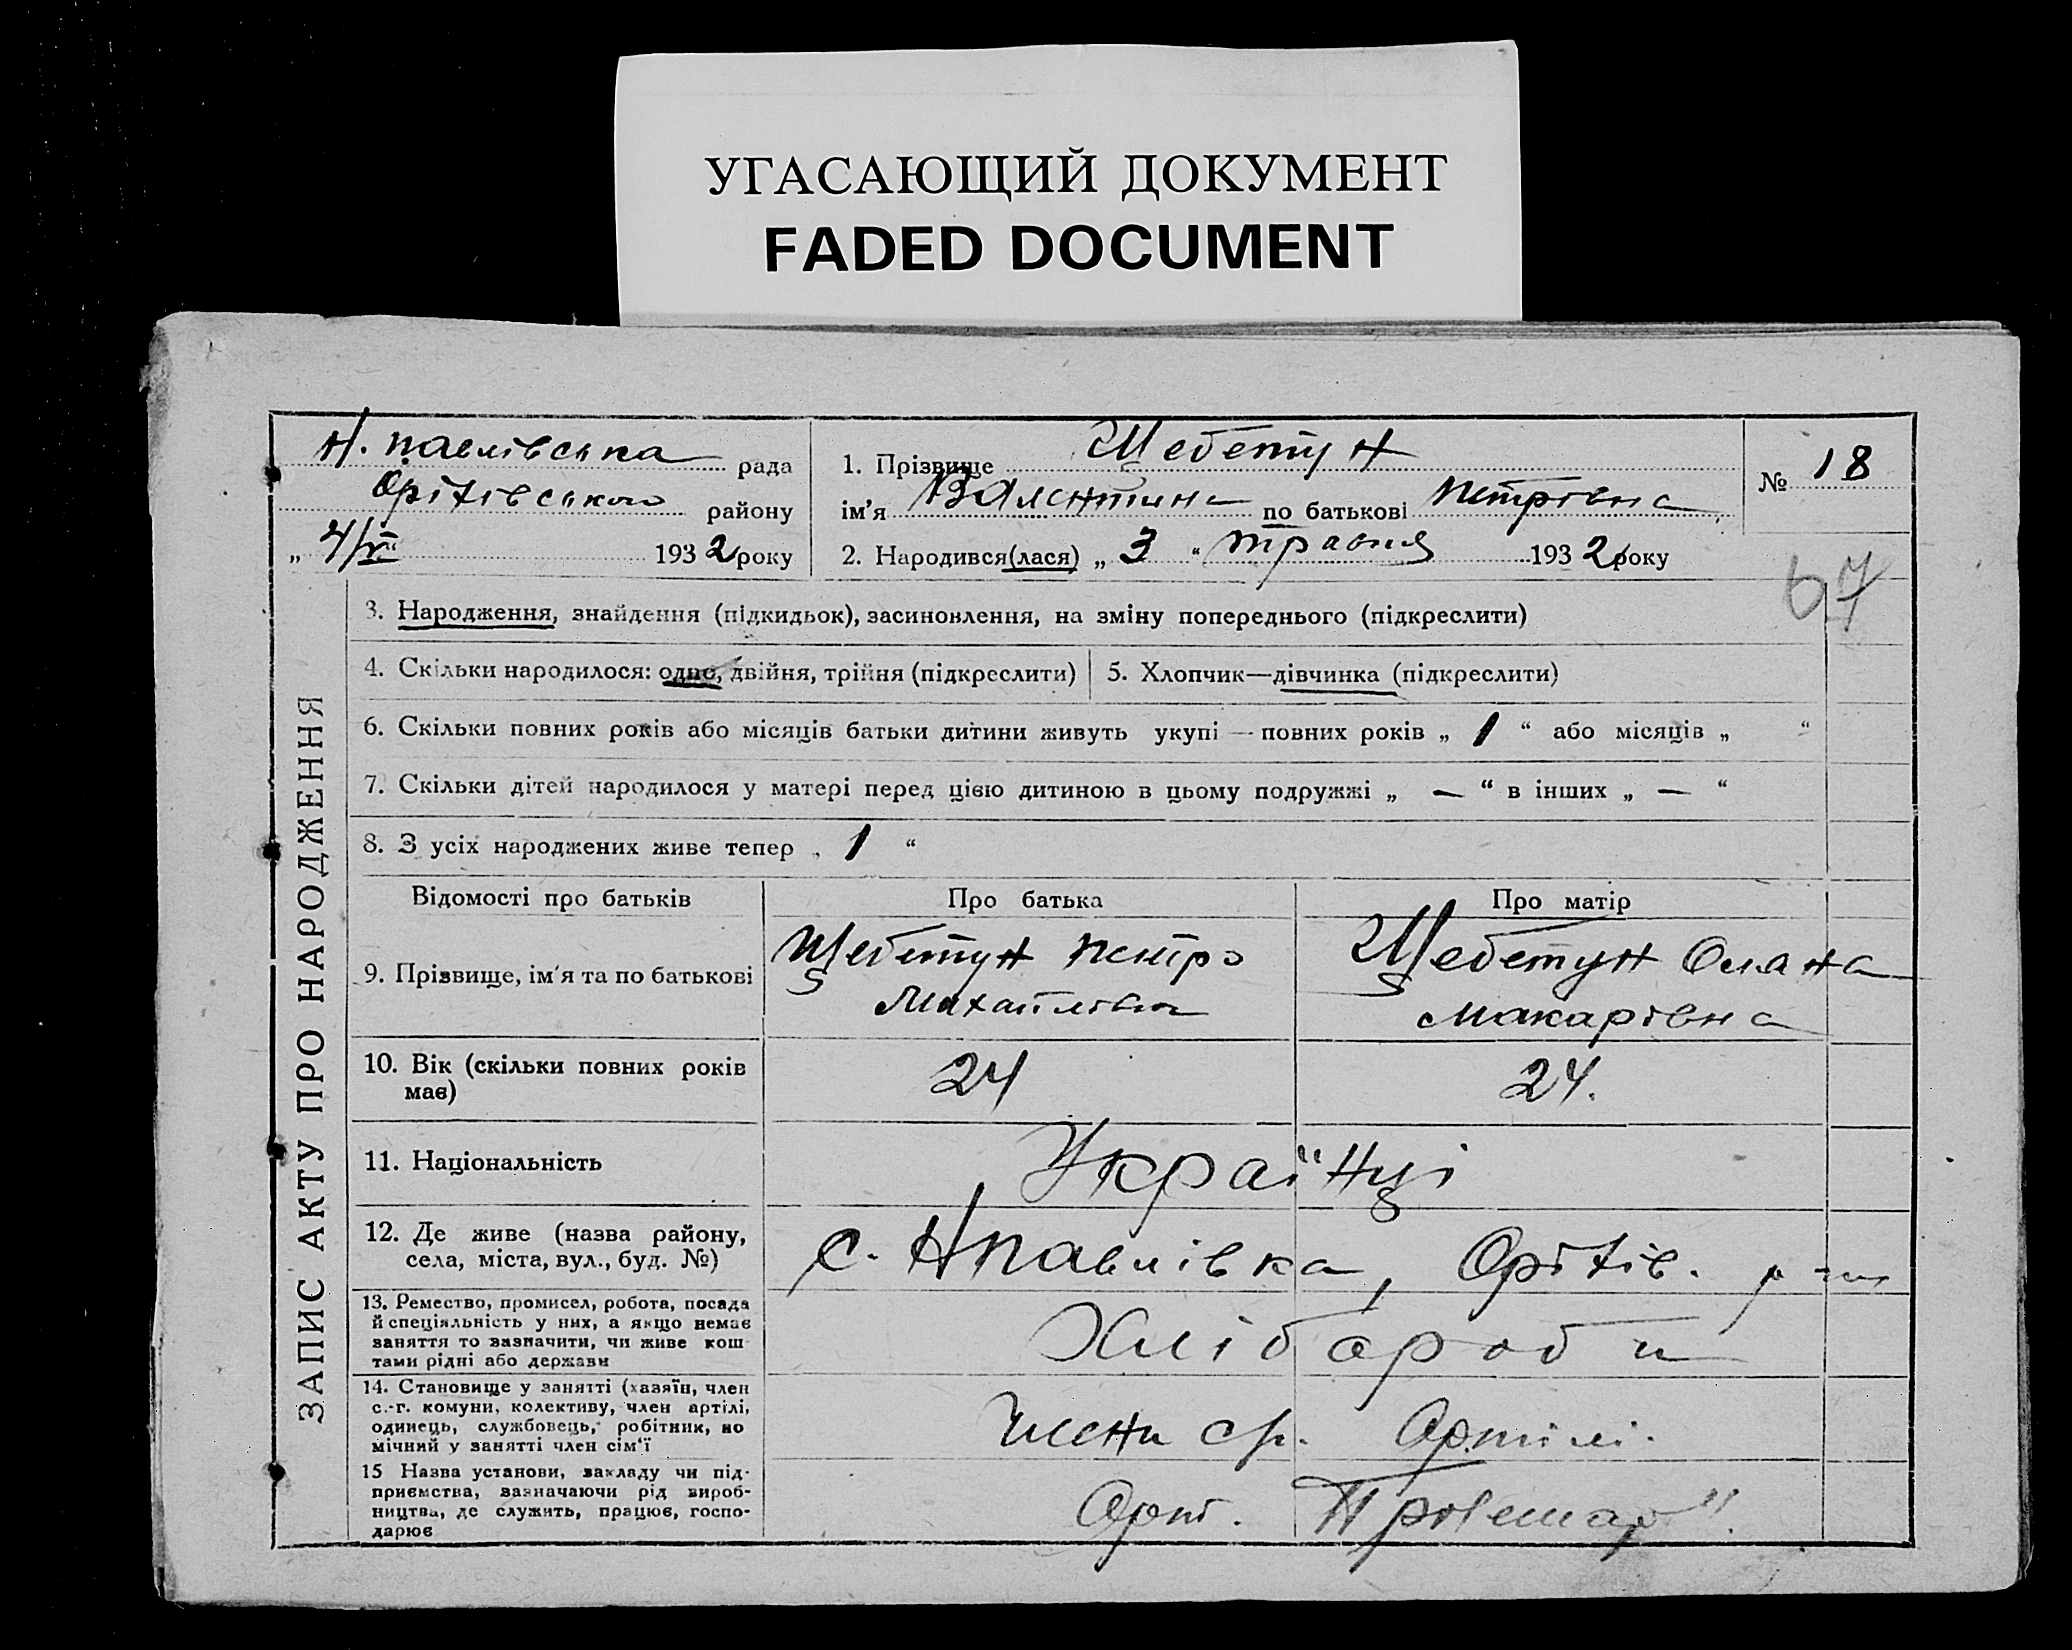 УГАСАЮЩИЙ ДОКУМЕНТ
FADED DOCUMENT
Н. павлівська рада
Оріхівського району
„ 4/VI “ 1932 року
1. Прізвище Щебетун
ім'я Валентина по батькові Петрівна
2. Народився(лася) „ 3 “ травня 1932 року
№ 18
67
ЗАПИС АКТУ ПРО НАРОДЖЕННЯ
3. Народження, знайдення (підкидьок), засиновлення, на зміну попереднього (підкреслити)
4. Скільки народилося: одно, двійня, трійня (підкреслити) 5. Хлопчик—дівчинка (підкреслити)
6. Скільки повних років або місяців батьки дитини живуть укупі — повних років „ 1 “ або місяців „ “
7. Скільки дітей народилося у матері перед цією дитиною в цьому подружжі „ — “ в інших „ — “
8. З усіх народжених живе тепер „ 1 “
Відомості про батьків Про батька Про матір
9. Прізвище, ім'я та по батькові
Щебетун Петро
Михайлович
Щебетун Олана
Макарівна
10. Вік (скільки повних років
має)
24 24.
11. Національність Українці
12. Де живе (назва району,
села, міста, вул., буд. №)
с. Нпавлівка, Оріхів. р-ну
13. Ремество, промисел, робота, посада
й спеціяльність у них, а якщо немає
заняття то зазначити, чи живе кош-
тами рідні або держави
Хлібароби
14. Становище у занятті (хазяїн, член
с.-г. комуни, колективу, член артілі,
одинець, службовець, робітник, по
мічний у занятті член сім'ї
Члени ср. Артілі.
15 Назва установи, закладу чи під-
приємства, зазначаючи рід вироб-
ництва, де служить, працює, госпо-
дарює
Арт. "Пролетар".